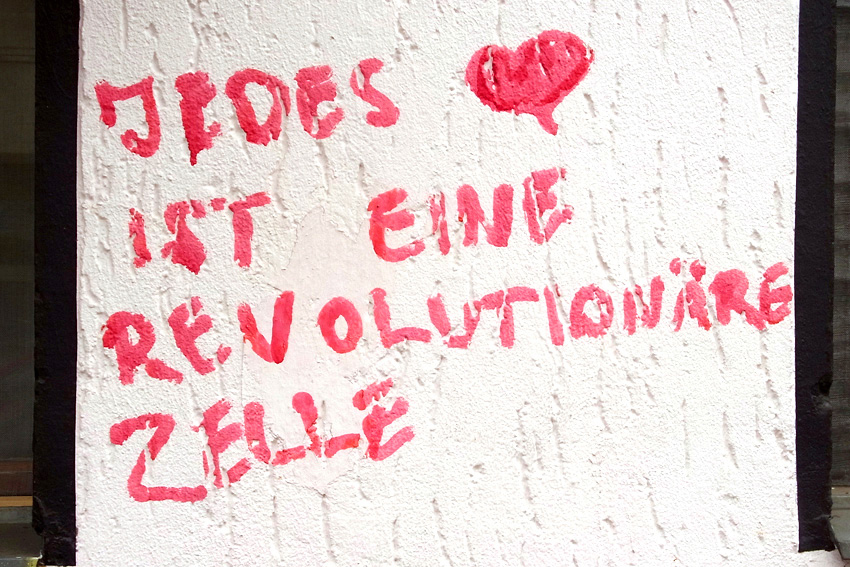 JEDES ❤
IST EINE
REVOLUTIONÄRE
ZELLE